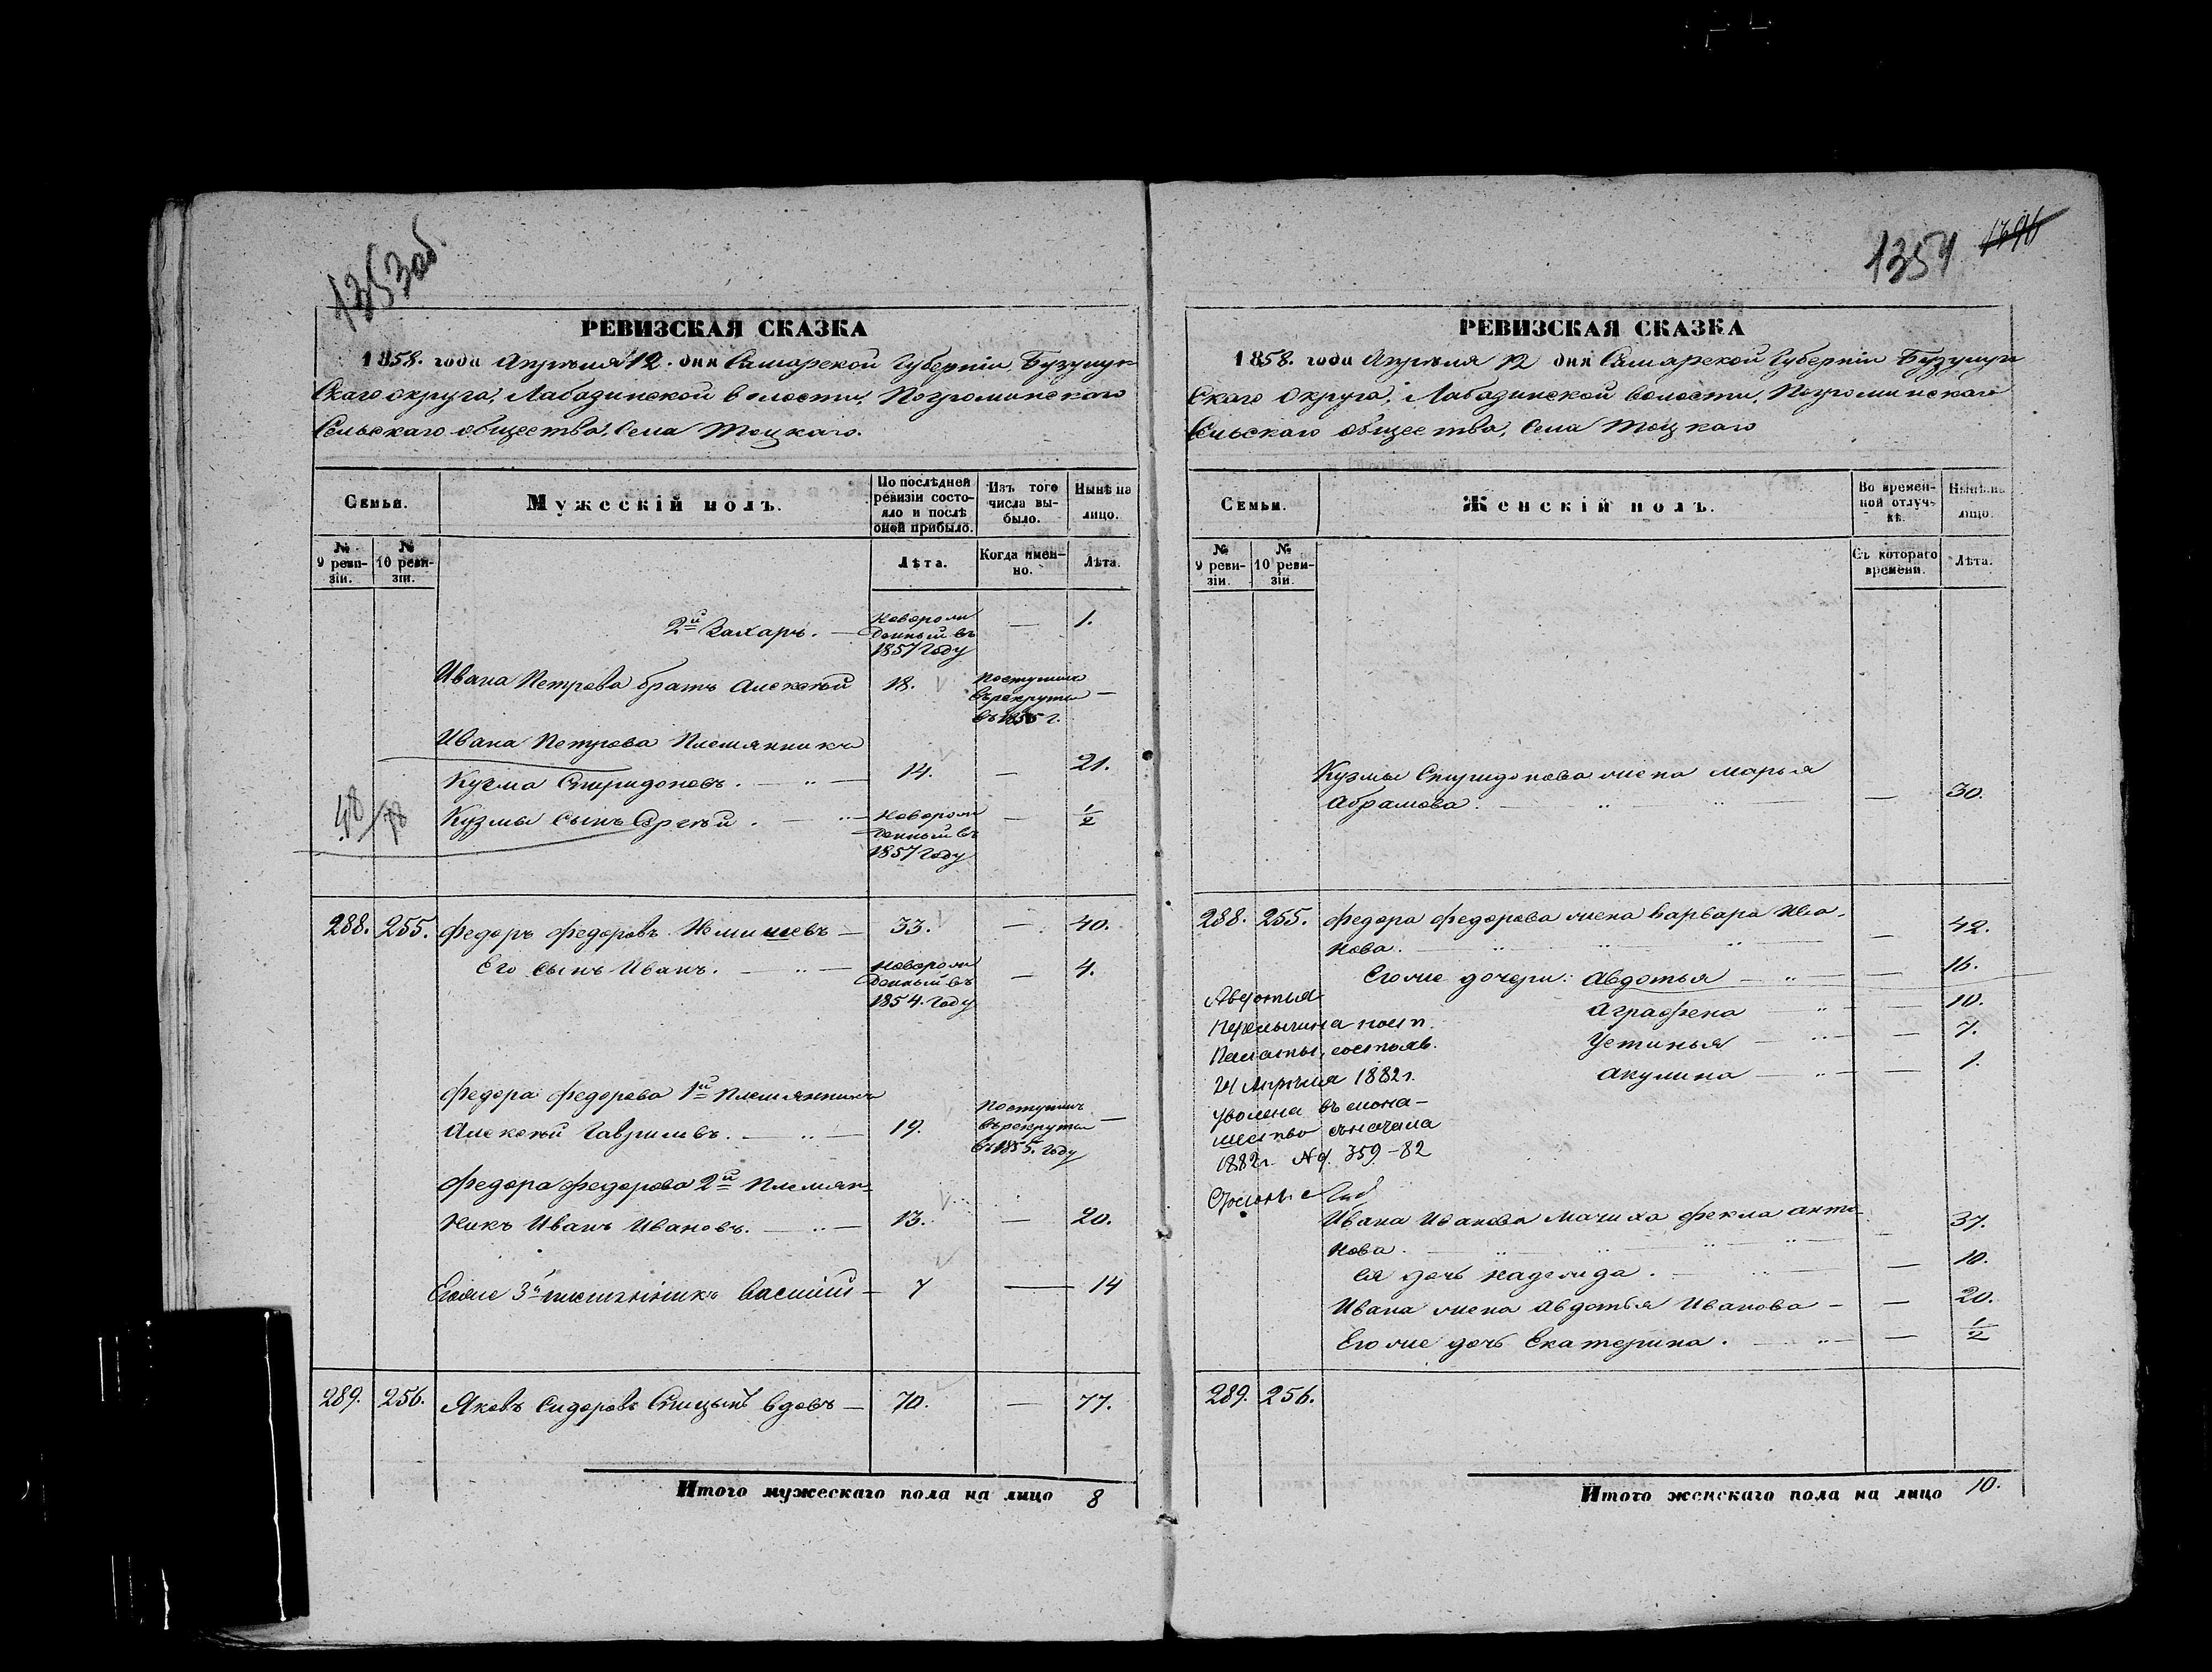 1353 об.
РЕВИЗСКАЯ СКАЗКА
1858. года Апрѣля 12. дня Самарской Губерніи Бузулук-
скаго округа, Лабазинской волости, Погроминскаго
Сельскаго общества, Села Тоцкаго.
Семьи.
Мужескій полъ.
По послѣдней ревизіи состояло и послѣ оной прибыло.
Изъ того числа выбыло.
Нынѣ на лицо.
№ 9 ревизіи.
№ 10 ревизіи.
Лѣта.
Когда именно.
Лѣта.
2й Захаръ. — Новорожденный въ 1857 году — 1.
Ивана Петрова братъ Алексѣй 18. Поступилъ въ рекруты въ 1855 г. —
Ивана Петрова Племянникъ
Кузма Спиридоновъ. — 14. — 21.
Кузмы Сынъ Сергѣй. — Новорожденный въ 1857 году — 1/2
288. 255. Федоръ Федоровъ — 33. — 40.
Его сынъ Иванъ. — Новорожденный въ 1854. году — 4.
Федора Федорова 1й Племянникъ
Алексѣй Гавриловъ. — 19. Поступилъ въ рекруты въ 1855. году —
Федора Федорова 2й Племян-
никъ Иванъ Ивановъ. — 13. — 20.
Егоже 3й племянникъ Василій — 7 — 14
289. 256. Яковъ Сидоровъ Спицынъ вдовъ — 70. — 77.
Итого мужескаго пола на лицо 8
1354
РЕВИЗСКАЯ СКАЗКА
1858. года Апрѣля 12 дня Самарской Губерніи Бузулук-
скаго Округа, Лабазинской волости, Погроминскаго
Сельскаго общества, Села Тоцкаго
Семьи.
Женскій полъ.
Во временной отлучкѣ.
Нынѣ на лицо.
№ 9 ревизіи.
№ 10 ревизіи.
Съ котораго времени.
Лѣта.
Кузмы Спиридонова жена Марья
Абрамова. — 30.
288. 255. Федора Федорова жена Варвара Ива-
нова. — 42.
Егоже дочери: Авдотья — 16.
Аграфена — 10.
Устинья — 7.
Акулина — 1.
Авдотья
пост.
Палаты, состояв.
Апрѣля 1882 г.
уволена въ мона-
шество съ начала
1882 г. № 359-82
Ивана Иванова Мачиха Фекла Анто-
нова. — 37.
Ея дочь Надежда. — 10.
Ивана жена Авдотья Иванова — 20.
Егоже дочь Екатерина. — 1/2
289. 256.
Итого женскаго пола на лицо 10.